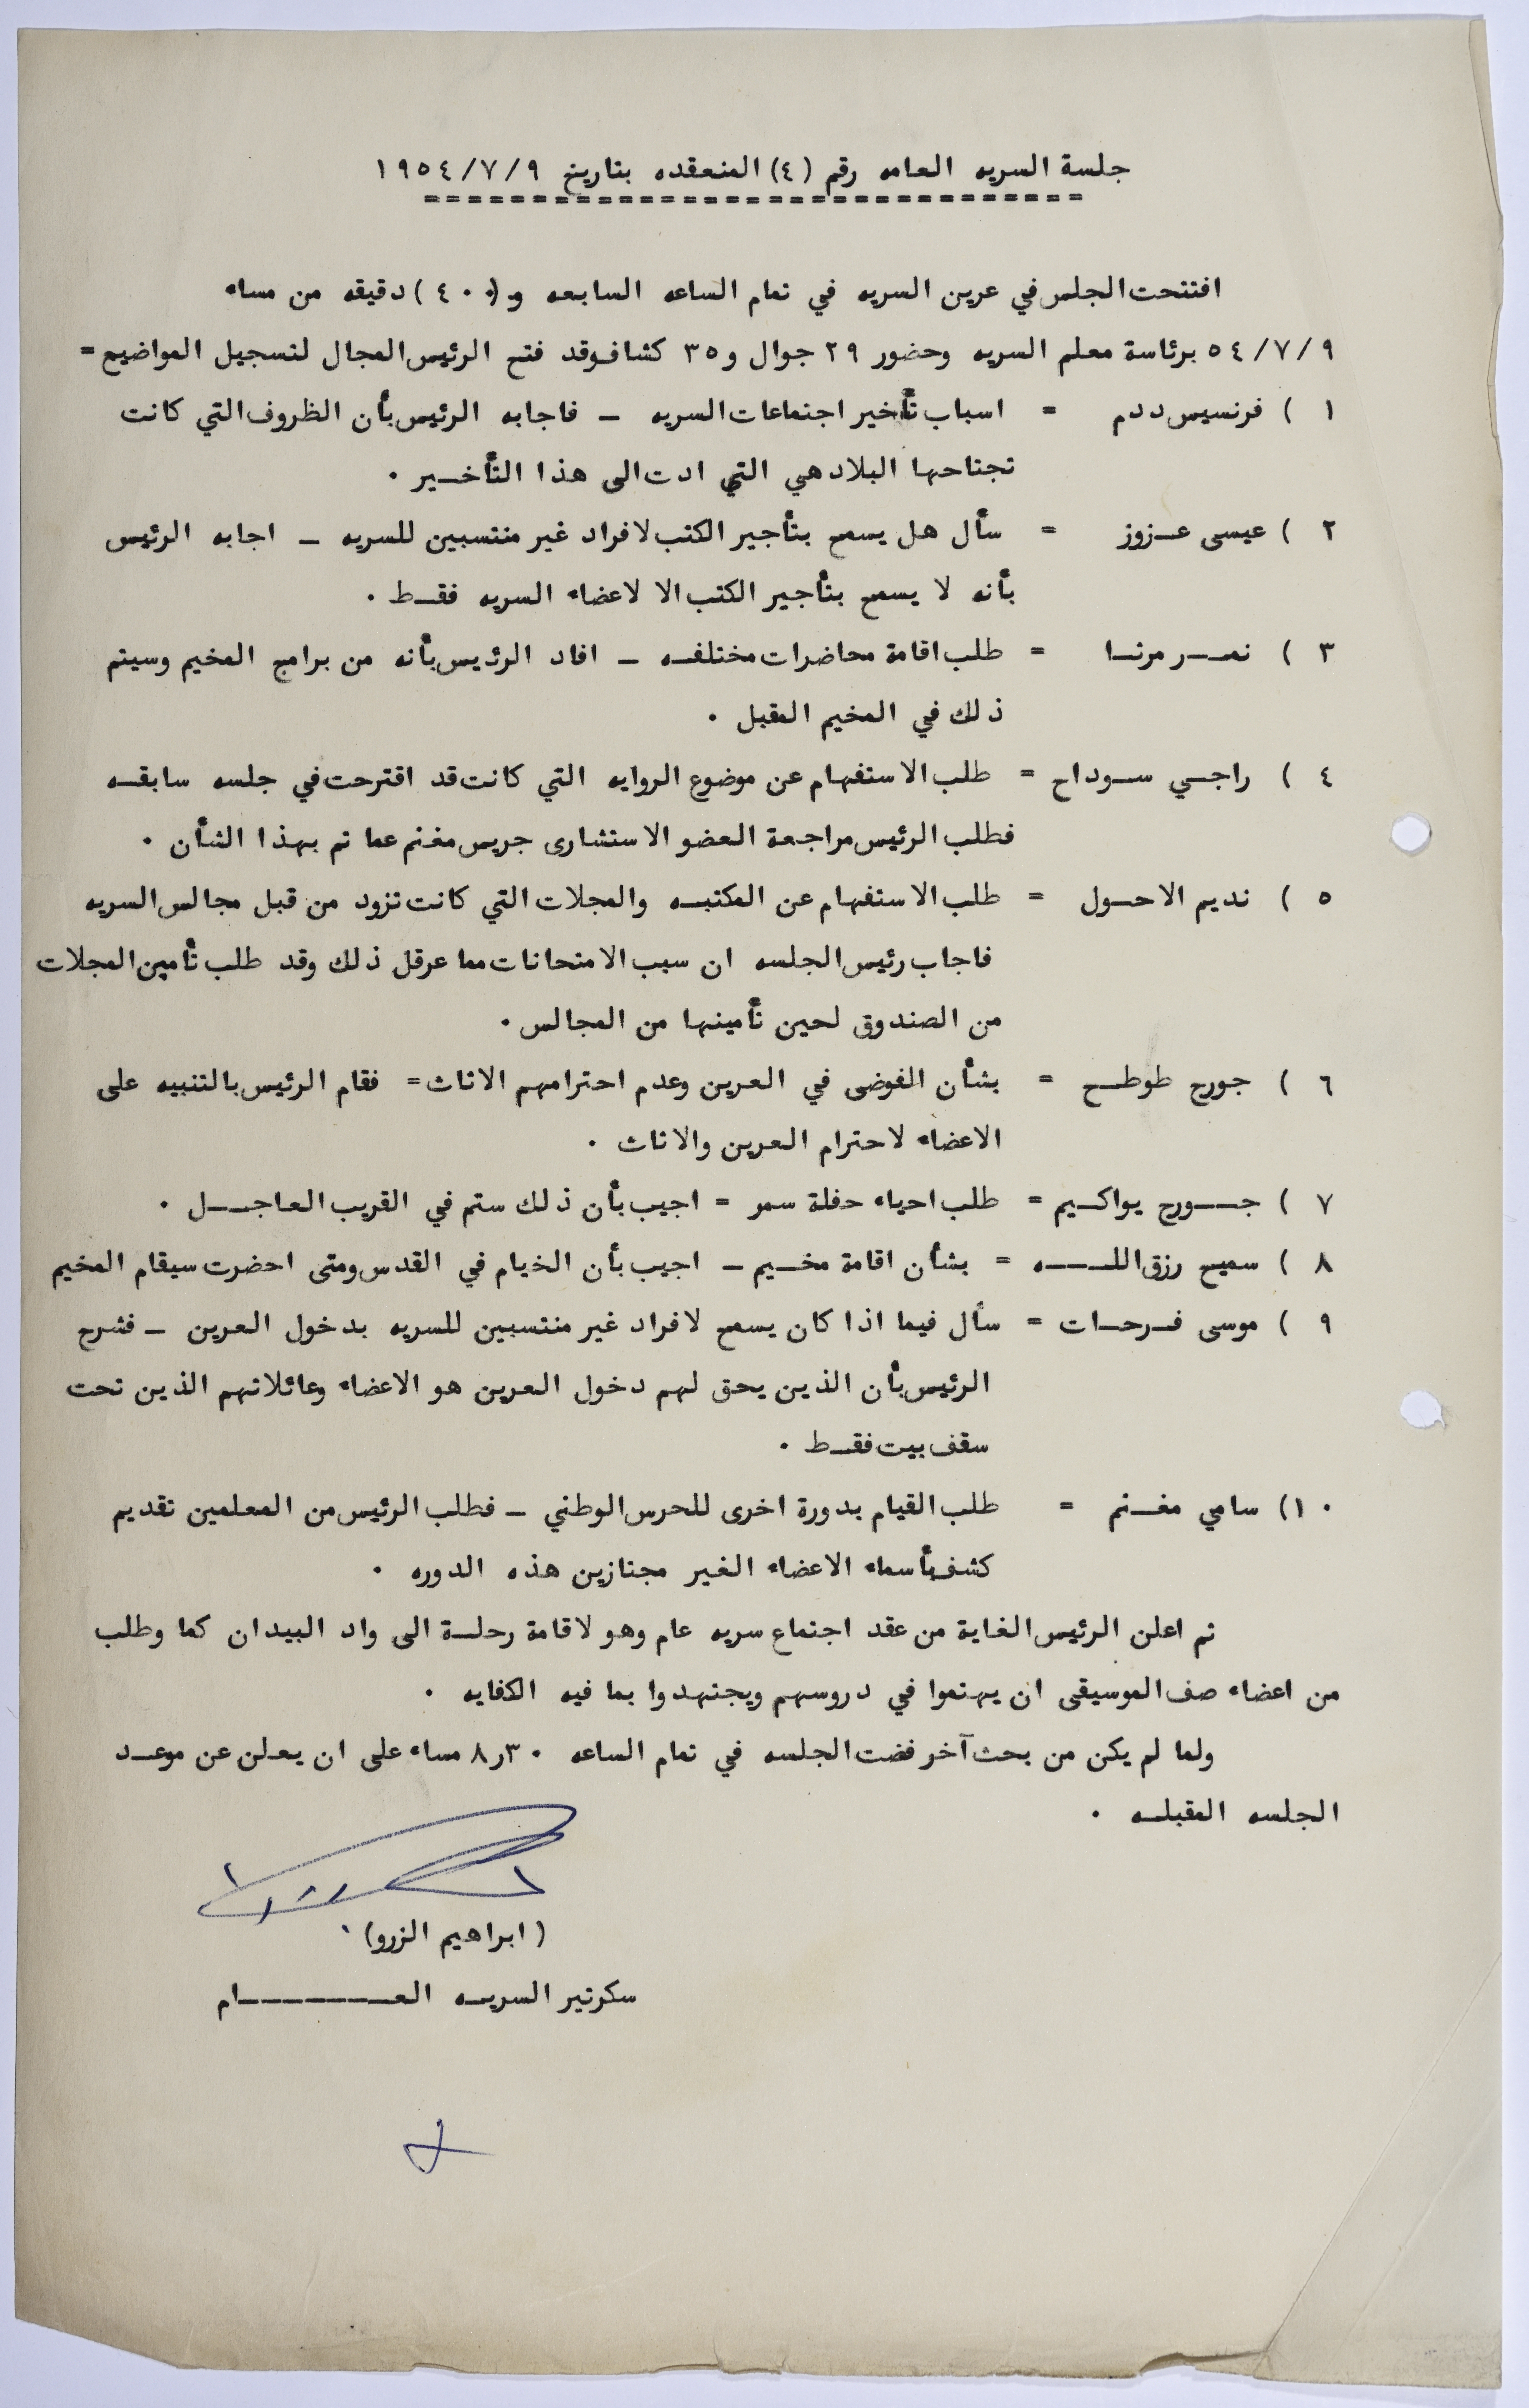 جلسة السريه العامه رقم (٤) المنعقده بتاريخ ١٩٥٤/٧/٩
===============================
افتتحت الجلس في عرين السريه في تمام الساعه السابعه و(٤٠٠) دقيقه من مساء
٥٤/٧/٩ برئاسة معلم السريه وحضور ٢٩ جوال و٣٥ كشاف وقد فتح الرئيس المجال لتسجيل المواضيع =
١ ) فرنسيس ددم = اسباب تأخير اجتماعات السريه – فاجابه الرئيس بأن الظروف التي كانت
تجتاحها البلاد هي التي ادت الى هذا التأخـير .
٢ ) عيسى عـزوز = سأل هل يسمح بتأجير الكتب لافراد غير منتسبين للسريه – اجابه الرئيس
بأنه لا يسمح بتأجير الكتب الا لاعضاء السريه فقـط .
٣ ) نمــر مرتـا = طلب اقامة محاضرات مختلفـه – افاد الرئيس بأنه من برامج المخيم وسيتم
ذلك في المخيم المقبل .
٤ ) راجـي سـوداح = طلب الاستفهام عن موضوع الروايه التي كانت قد اقترحت في جلسه سابقـه
فطلب الرئيس مراجعة العضو الاستشارى جريس مغنم عما تم بهذا الشأن .
٥ ) نديم الاحـول = طلب الاستفهام عن المكتبـه والمجلات التي كانت تزود من قبل مجالس السريه
فاجاب رئيس الجلسه ان سبب الامتحانات مما عرقل ذلك وقد طلب تأمين المجلات
من الصندوق لحين تأمينها من المجالس .
٦ ) جورج طوطـح = بشأن الفوضى في العرين وعدم احترامهم الاثاث = فقام الرئيس بالتنبيه على
الاعضاء لاحترام العرين والاثاث .
٧ ) جــورج يواكـيم = طلب احياء حفلة سمر = اجيب بأن ذلك ستم في القريب العاجــل .
٨ ) سميح رزق اللــــه = بشأن اقامة مخـيم – اجيب بأن الخيام في القدس ومتى احضرت سيقام المخيم
٩ ) موسى فـرحـات = سأل فيما اذا كان يسمح لافراد غير منتسبين للسريه بدخول العرين – فشرح
الرئيس بأن الذين يحق لهم دخول العرين هو الاعضاء وعائلاتهم الذين تحت
سقف بيت فقـط .
١٠) سامي مغـنم = طلب القيام بدورة اخرى للحرس الوطني – فطلب الرئيس من المعلمين تقديم
كشف بأسماء الاعضاء الغير مجتازين هذه الدوره .
ثم اعلن الرئيس الغاية من عقد اجتماع سريه عام وهو لاقامة رحلـة الى واد البيدان كما وطلب
من اعضاء صف الموسيقى ان يهتموا في دروسهم ويجتهدوا بما فيه الكفايه .
ولما لم يكن من بحث آخر فضت الجلسه في تمام الساعه ٨٫٣٠ مساء على ان يعلن عن موعـد
الجلسه المقبلـه .
(ابراهيم الزرو)
سكرتير السريـه العــــــــام